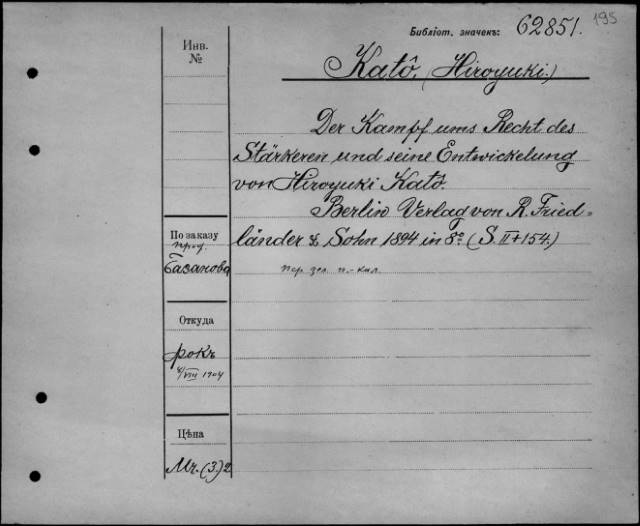 Библіот. значекъ: 62851.
195
Инв.
№
Katô, (Hiroyuki.)
Der Kampf ums Recht des
Stärkeren und seine Entwickelung
von Hiroyuki Katô.
Berlin Verlag von R. Fried=
länder & Sohn 1894 in 8º (S. II+154.)
По заказу
проф.
Базанова
пер. зел. п.-кал.
Откуда
рокъ
6/VIII 1904
Цѣна
Mr. (3.) 2